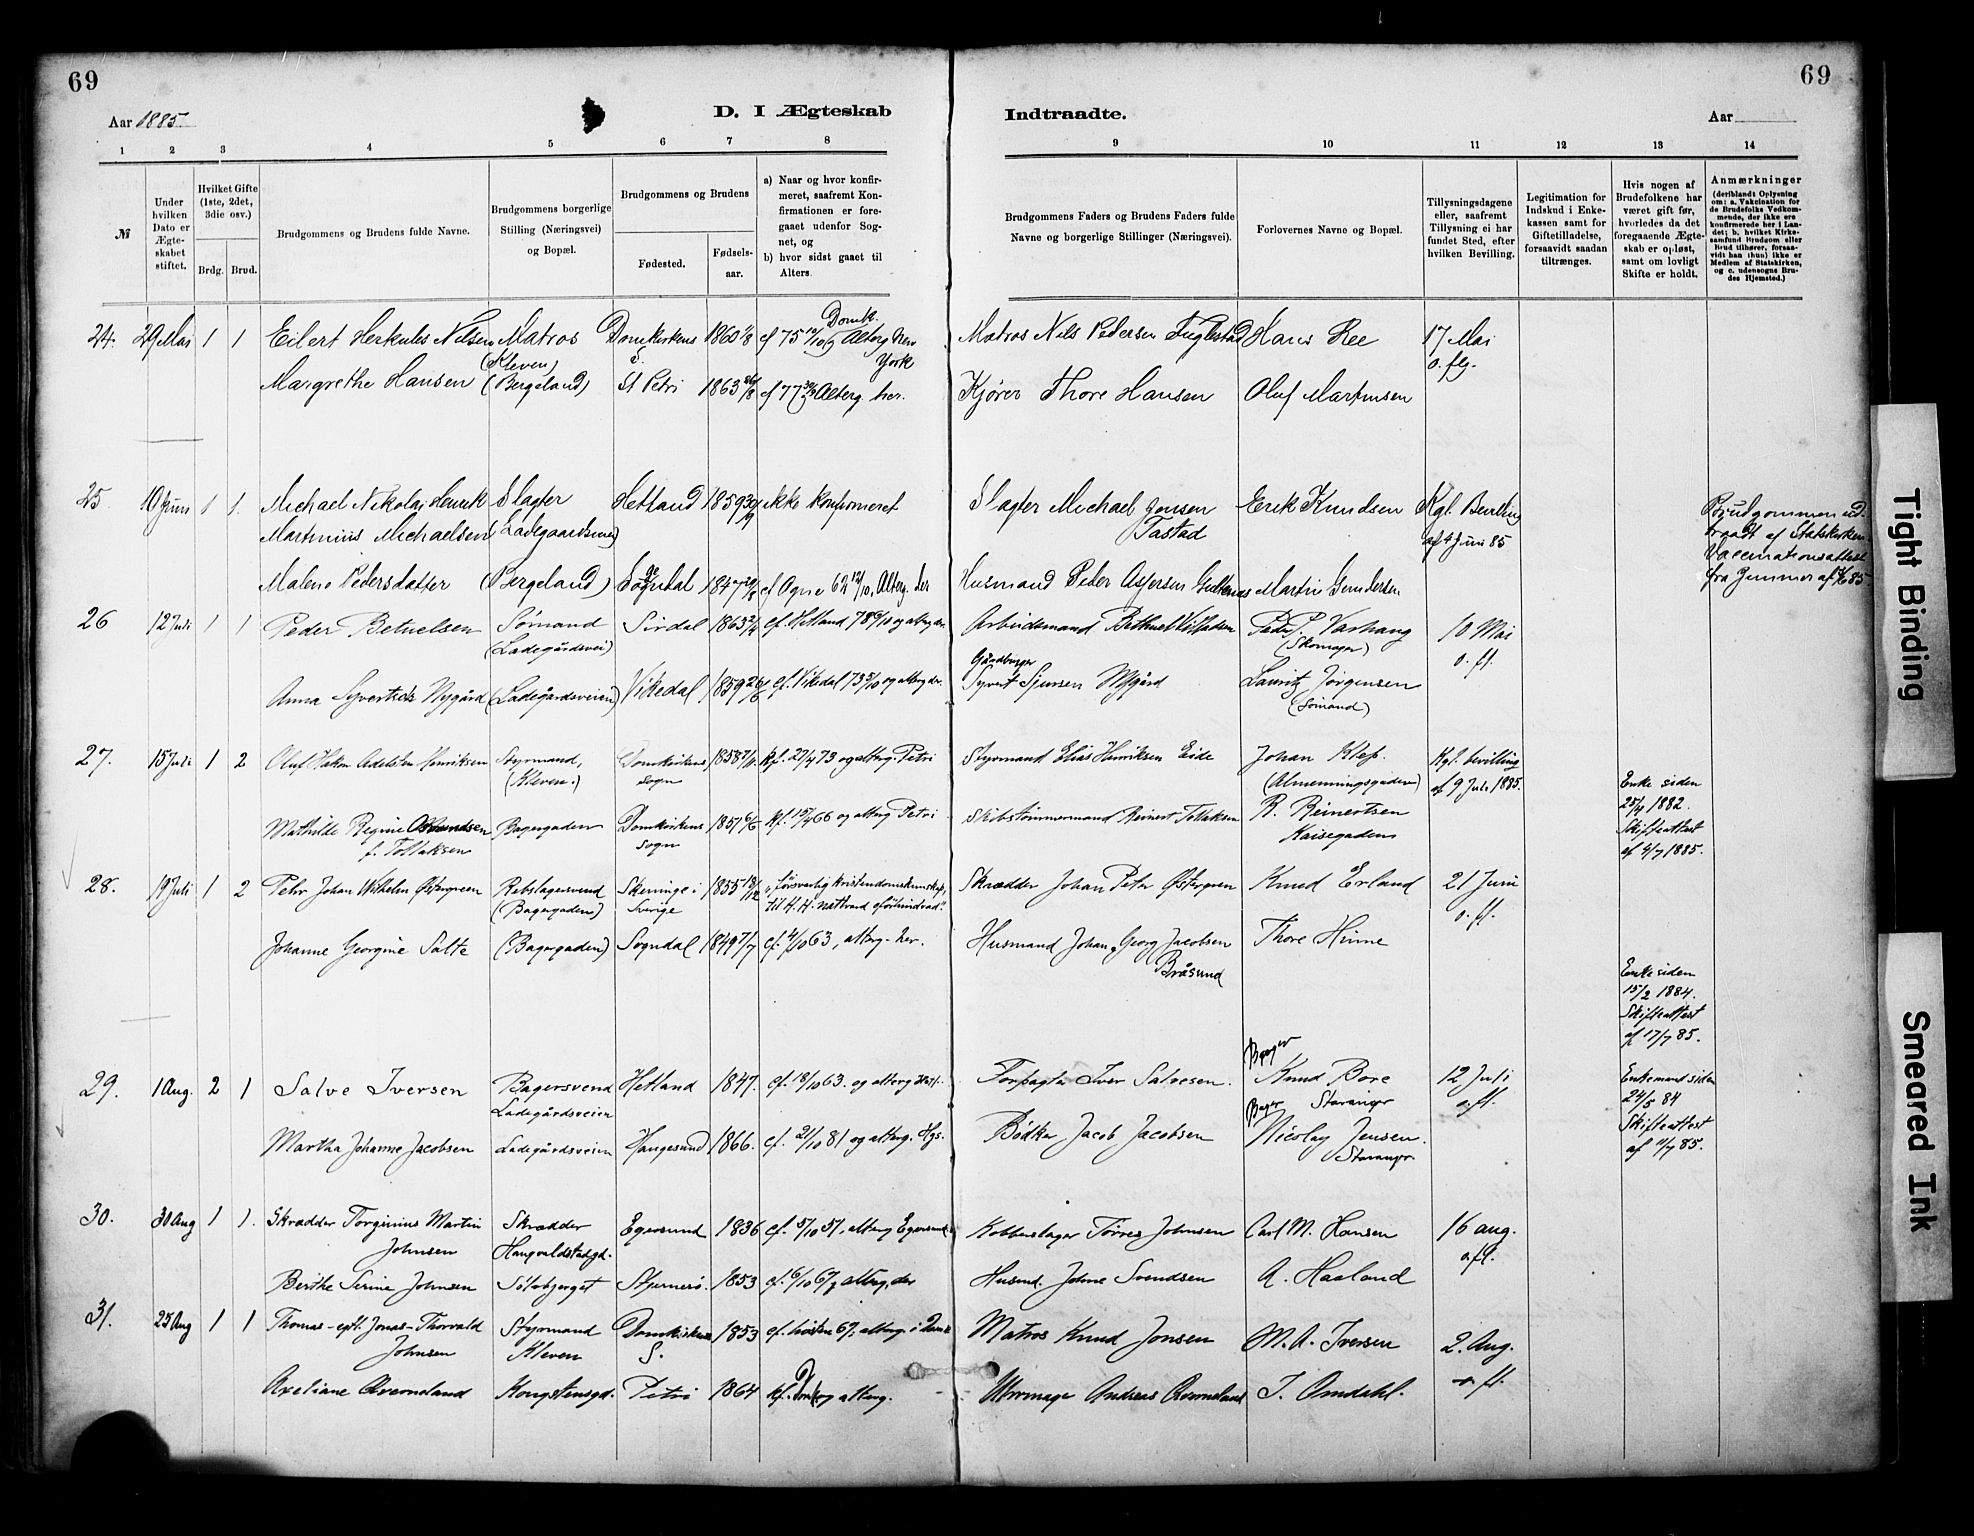 69
69
Aar 1885.
D. I Ægteskab
Indtraadte.
Aar
1 2 3 4 5 6 7 8 9 10 11 12 13 14
№
Under
hvilken
Dato er
Ægte-
skabet
stiftet.
Hvilket Gifte
(1ste, 2det,
3die osv.)
Brdg. Brud.
Brudgommens og Brudens fulde Navne.
Brudgommens borgerlige
Stilling (Næringsvei)
og Bopæl.
Brudgommens og Brudens
Fødested.
Fødsels-
aar.
a) Naar og hvor konfir-
meret, saafremt Kon-
firmationen er fore-
gaaet udenfor Sog-
net, og
b) hvor sidst gaaet til
Alters.
Brudgommens Faders og Brudens Faders fulde
Navne og borgerlige Stillinger (Næringsvei).
Forlovernes Navne og Bopæl.
Tillysningsdagene
eller, saafremt
Tillysning ei har
fundet Sted, efter
hvilken Bevilling.
Legitimation for
Indskud i Enke-
kassen samt for
Giftetilladelse,
forsaavidt saadan
tiltrænges.
Hvis nogen af
Brudefolkene har
været gift før,
hvorledes da det
foregaaende Ægte-
skab er opløst,
samt om lovligt
Skifte er holdt.
Anmærkninger
(deriblandt Oplysning
om: a. Vakcination for
de Brudefolks Vedkom-
mende, der ikke ere
konfirmerede her i Lan-
det; b. hvilket Kirke-
samfund Brudgom eller
Brud tilhører, forsaa-
vidt han (hun) ikke er
Medlem af Statskirken,
og c. udensogns Bru-
des Hjemsted.)
24. 29 Mai 1 1 Eilert Herkules Nilsen Matros Domkirkens 1860 1/8 cf 75 Domk. Alterg New Matros Nils Pedersen Fuglestad Hans Ree 17 Mai
(Kleven) S. York o. flg.
Margrethe Hansen (Bergeland) St Petri 1863 cf 77 Alterg. her. Kjører Thore Hansen Oluf Martinsen
25. 10 Juni 1 1. Michael Nikolai Henrik Slagter Hetland 1859 ikke konfirmeret Slagter Michael Jensen Erik Knudsen Kgl. Bevilling Brudgommen ud-
Martinius Michaelsen (Ladegaardsveien) Tastad af 4 Juni 85 traadt af Statskirken
Vaccinationsattest
Malene Pedersdatter (Bergeland) Sogndal 1847 cf Ogne 62 12/10. Alterg. der Husmand Peder Asjersen Martin Gundersen fra af 85
26 12 Juli 1 1 Peder Betuelsen Sømand Sirdal 1863 cf. Hetland 78 og alterg der. Arbeidsmand Peder P. Varhaug 10 Mai
(Ladegårdsvei) (Skomager) o. fl.
Gårdbruger
Anna Syvertsd. Nygård (Ladegårdsveien) Vikedal 1859 cf. Vikedal 73 og alterg der. Syvert Sjursen Nygård Lauritz Jørgensen
(Sømand)
27. 15 Juli 1 2 Oluf Hakon Adelsten Henriksen Styrmand, Domkirkens 1858 kf. 27/4 73 og alterg. Petri Styrmand Elias Henriksen Eide Johan Klep. Kgl. bevilling
(Kleven.) sogn (Almenningsgaden) af 9 Juli 1885. Enke siden
25/4 1882.
Mathilde Regine Osmundsen Bagergaden Domkirkens 1851 kf. 15/4 66 og alterg Petri Skibstømmermand Reinert Tollaksen R. Reinertsen Skifteattest
f. Tollaksen sogn Kaisegaden af 4/7 1885.
28. 19 Juli 1 2 Petter Johan Wilhelm Østergreen Rebslagersvend Skerninge i 1855 "försvarlig kristendomskunskap, Skrædder Johan Peter Østergreen Knud Erland 21 Juni
(Bagergaden) Sverige till H. H. nattvard oförhindrad". o. fl.
Johanne Georgine Salte (Bagergaden) Sogndal 1849 7/7 cf. 4/10 63, alterg. her. Husmand Johan Georg Jacobsen Thore Hinne
Bråsund
Enke siden
15/2 1884.
Skifteattest
af 17/7 85.
29. 1 Aug. 2 1 Salve Iversen Bagersvend Hetland 1847. cf. 18/10 63. og alterg Hetl. Forpagter Iver Salvesen. Bager Knud Bore 12 Juli Enkemand siden
Ladegårdsveien Stavanger o.fl. 24/5 84
Martha Johanne Jacobsen Ladegårdsveien Haugesund 1866. cf. 21/10 81 og alterg. Hgs. Bødker Jacob Jacobsen Bager Nicolay Jensen. Skifteattest
Stavanger af 11/7 85.
30. 30 Aug 1 1. Skrædder Torginius Martin Skrædder Egersund 1836 cf. 5/10 51, alterg Egersund Kobberslager Tørres Johnsen Carl M. Hansen 16 aug.
Johnsen Haugvaldstadgd. o.fl.
Berthe Serine Johnsen Sølvbjerget Stjernerö. 1853 cf. 6/10 67, alterg, der Husmd. Johne Svendsen A. Haaland
31. 25 Aug 1 1 Thomas - Jonas - Thorvald Styrmand Domkirkens 1853 cf. høsten 67, alterg. i Dom Matros Knud Jonsen M. A. Iversen 2. Aug.
Johnsen Kleven S. o fl.
Axeliane Qverneland Kongstensgd. Petri 1864 kf. Domk og alterg. Uhrmager Andreas Qverneland T. Omdahl.
Tight Binding
Smeared Ink